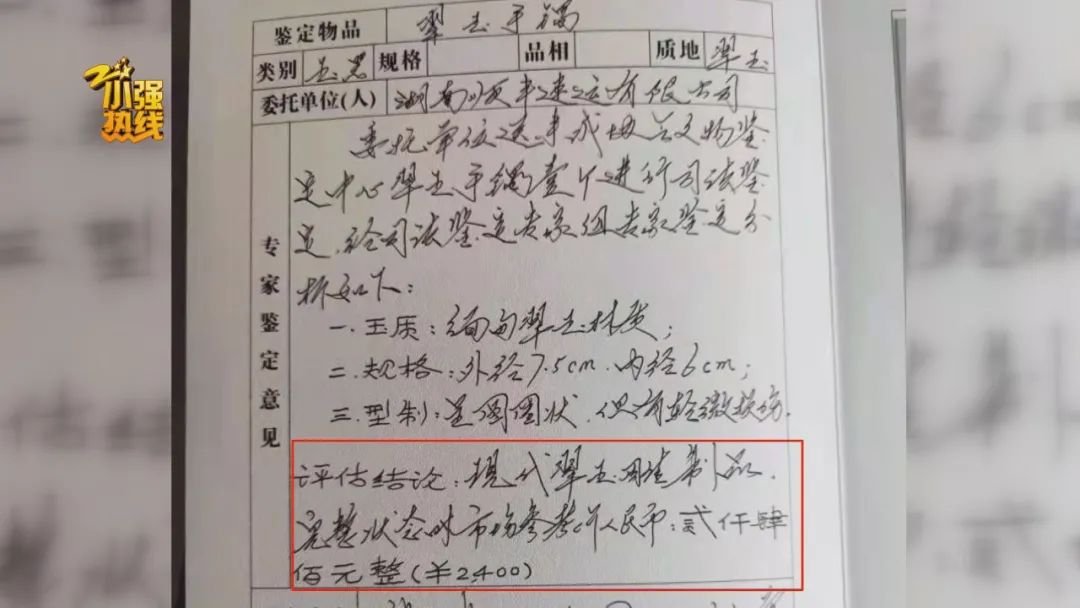 小强
热线
鉴定物品 翠玉手镯
类别 玉器 规格 品相 质地 翠玉
委托单位(人) 湖南顺丰速运有限公司
专家鉴定意见
委托单位送来或拍兰文物鉴
定中心翠玉手镯壹个进行司法鉴
定,经司法鉴定专家组专家鉴定分
析如下:
一.玉质:缅甸翠玉材质;
二.规格:外径7.5cm.内径6cm;
三.型制:呈圆圈状,但有轻微损伤.
评估结论:现代翠玉圆镯制品.
完整状态时市场参考价人民币:贰仟肆
佰元整(¥2,400)